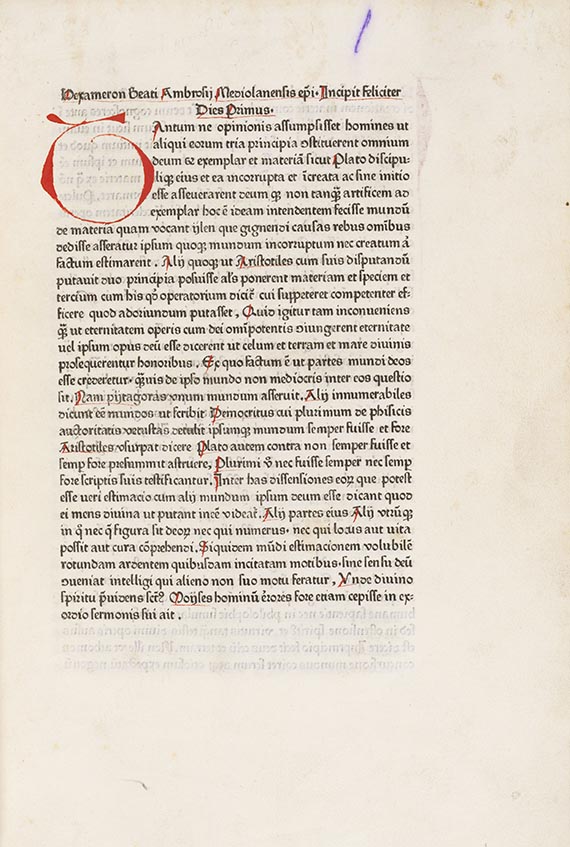 Hexameron Beati Ambrosij Mediolanensis ep̄i. Incipit feliciter
Dies Primus.
TAntum ne opinionis assumpsisset homines ut
aliqui eorum tria principia ↄstituerent omnium
deum ⁊ exemplar et materiā sicut Plato discipu-
liqꝫ eius et ea incorrupta et īcreata ac sine initio
esse asseuerarent deum qꝫ non tanqꝫ artificem ad
exemplar hoc ē ideam intendentem fecisse mundū
de materia quam vocant ylen que gignendi causas rebus omībus
dedisse asseratur ipsum quoqꝫ mundum incorruptum nec creatum á
factum estimarent. Alij quoqꝫ ut Aristotiles cum suis disputandū
putauit duo principia posuisse al's ponerent materiam et speciem et
tercium cum his qd̄ operatorium dicit̄ cui suppeteret competenter ef-
ficere quod adoriundum putasset, Quid igitur tam inconueniens
qꝫ ut eternitatem operis cum dei om̄ipotentis ↄiungerent eternitate
uel ipsum opus deū esse dicerent ut celum et terram et mare diuinis
prosequerentur honoribus. Ex quo factum ē ut partes mundi deos
esse crederetur. qꝫuis de ipso mundo non mediocris inter eos questio
sit. Nam pijtagoras vnum mundum asseruit. Alij innumerabiles
dicunt eē mundos ut scribit Democritus cui plurimum de phisicis
auctoritatis vetustas detulit ipsumqꝫ mundum semper fuisse et fore
Aristotiles vsurpat dicere Plato autem contra non semper fuisse et
semp fore presummit astruere, Plurimi v̄o nec fuisse semper nec semp
fore scriptis suis testificantur. Inter has dissensiones eorꝝ que potest
esse ueri estimacio cum alij mundum ipsum deum esse dicant quod
ei mens diuina ut putant inee videat̄. Alij partes eius Alij vtrūqꝫ
in q̄ nec q̄ figura sit deorꝝ nec qui numerus. nec qui locus aut vita
possit aut cura cōprehendi. Siquidem mūdi estimacionem volubilē
rotundam ardentem quibusdam incitatam motibus. sine sensu deū
ↄueniat intelligi qui alieno non suo motu feratur, Vnde diuino
spiritu p̄uidens sct̄s Moyses hominū ērores fore etiam cepisse in ex-
ordio sermonis sui ait.